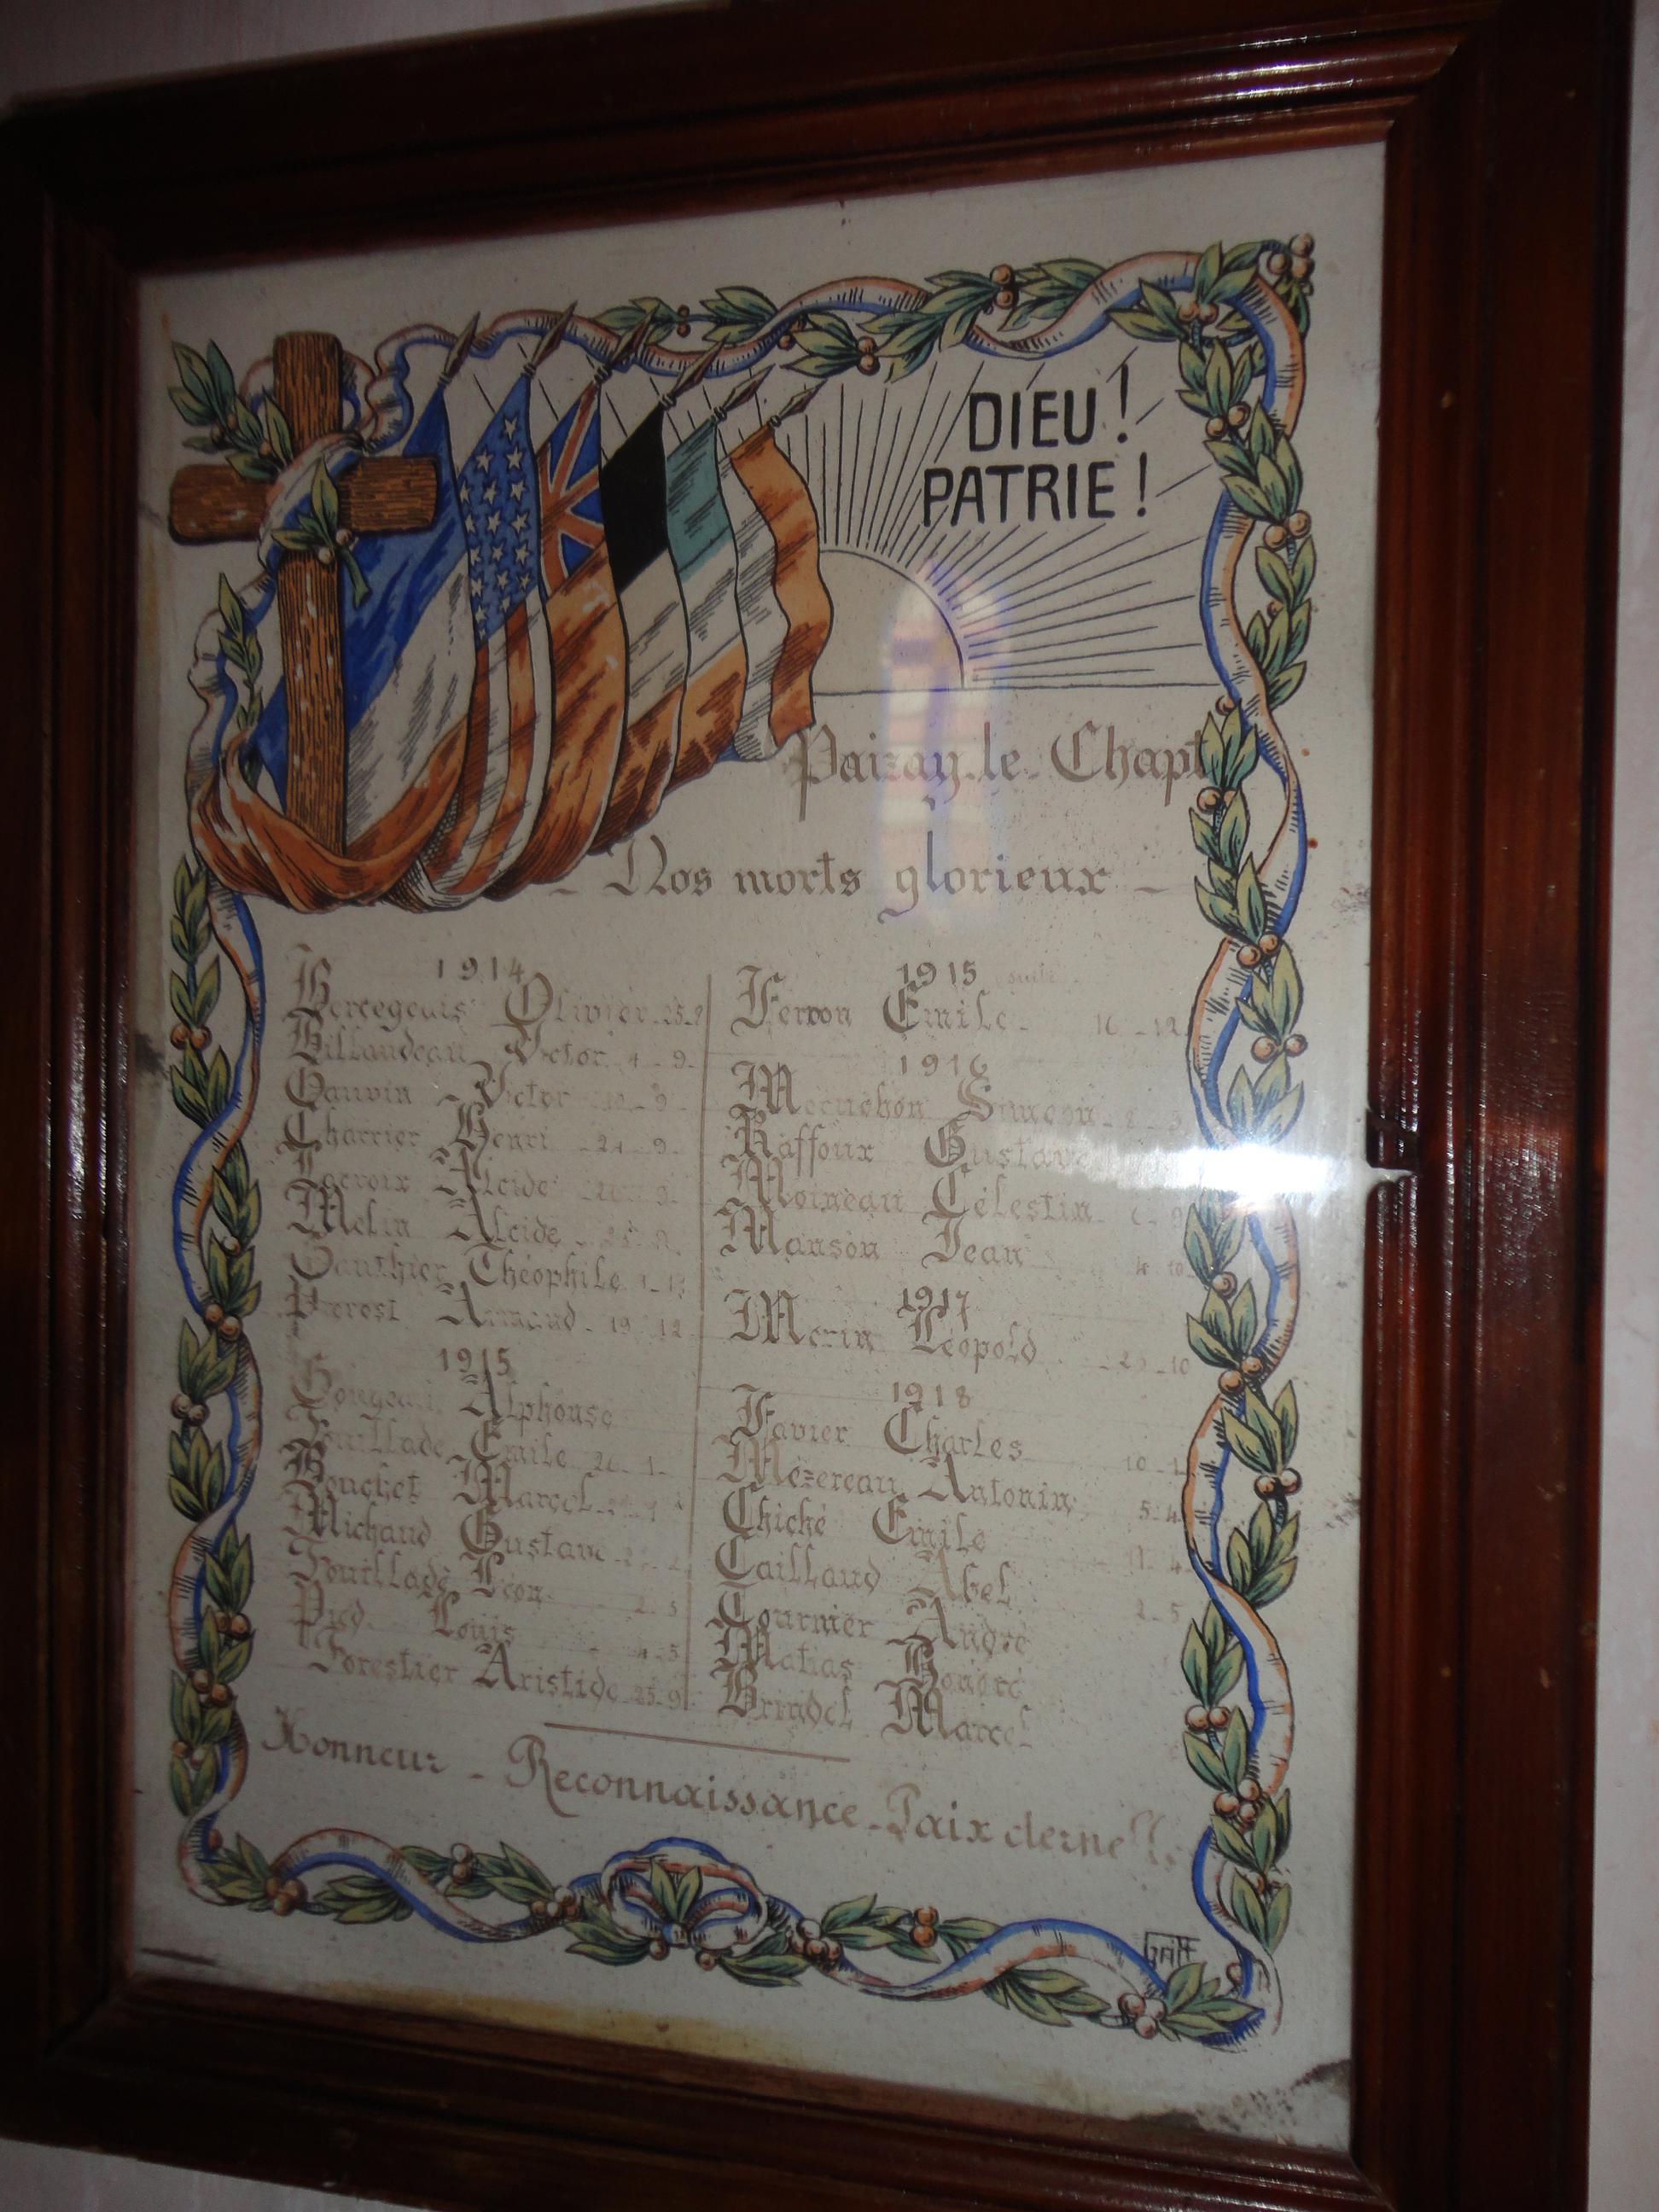 DIEU!
PATRIE!
Paizay-le-Chapt
- Nos morts glorieux -
1914
Bercegeais Olivier - 25-9
Billaudeau Victor - 4-9-
Gauvin Victor 9-
Charrier Henri - 24-9-
Lacroix Alcide 9-
Melin Alcide
Gauthier Théophile
Prerost Armand - 19 12
1915
Alphonse
Fouillade Emile 26-1-
Bouchet Marcel
Michaud Gustave
Fouillade Léon
Pied Louis 4-5
Forestier Aristide 25-9
1915 suite
Ferron Emile - 16-12
1916
Siméon
Raffoux Gustave
Moineau Célestin
Manson Jean 4 10
1917
Morin Léopold 10
1918
Favier Charles 10
Mézereau Antonin 5-4
Chiché Emile 11-4
Caillaud Abel 2-5
Tournier André
Matias Honoré
Brindel Marcel
Honneur - Reconnaissance - Paix éterne!!
Griff